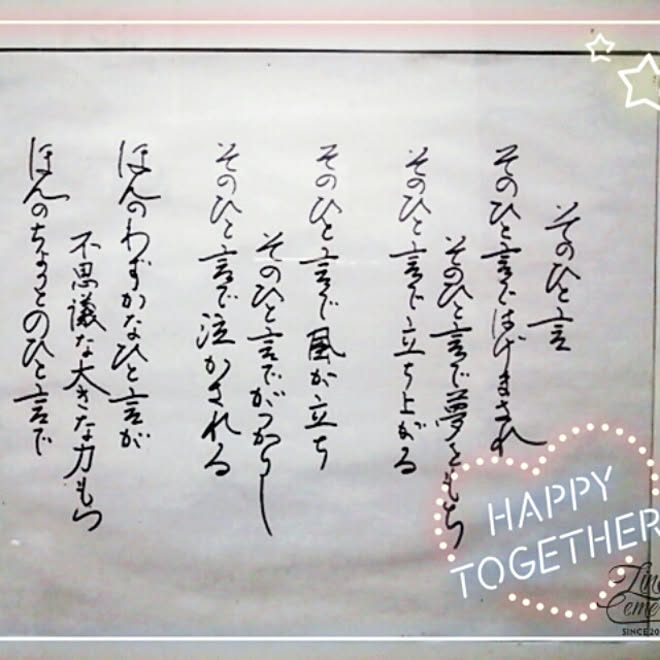 そのひと言
そのひと言ではげまされ
そのひと言で夢をもち
そのひと言で立ち上がる
そのひと言で風が立ち
そのひと言でがっかりし
そのひと言で泣かされる
ほんのわずかなひと言が
不思議な大きな力もつ
ほんのちょっとのひと言で
HAPPY
TOGETHER
SINCE 20